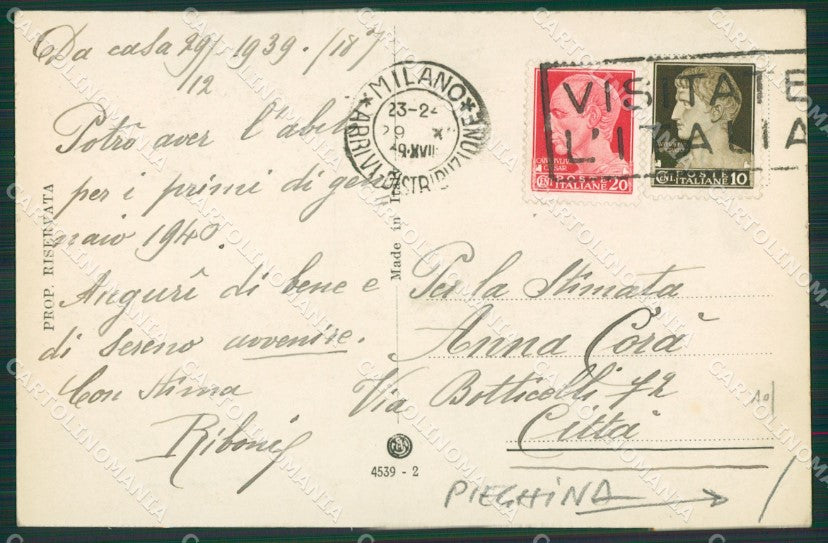 Da casa 29/12 1939./18°
Potrò aver l'abito
per i primi di gen
naio 1940.
Augurî di bene e
di sereno avvenire.
Con stima
Ribonis
PROP. RISERVATA
Made in
MILANO
ARRIVI DISTRIBUZIONE
23-24
29 X
39 XVIII
VISITATE
L'ITALIA
CAESAR
POSTE
ITALIANE 20
POSTE
ITALIANE 10
Per la Stimata
Anna Corà
Via Botticelli 42
Città
4539 - 2
PIEGHINA
CARTOLINOMANIA